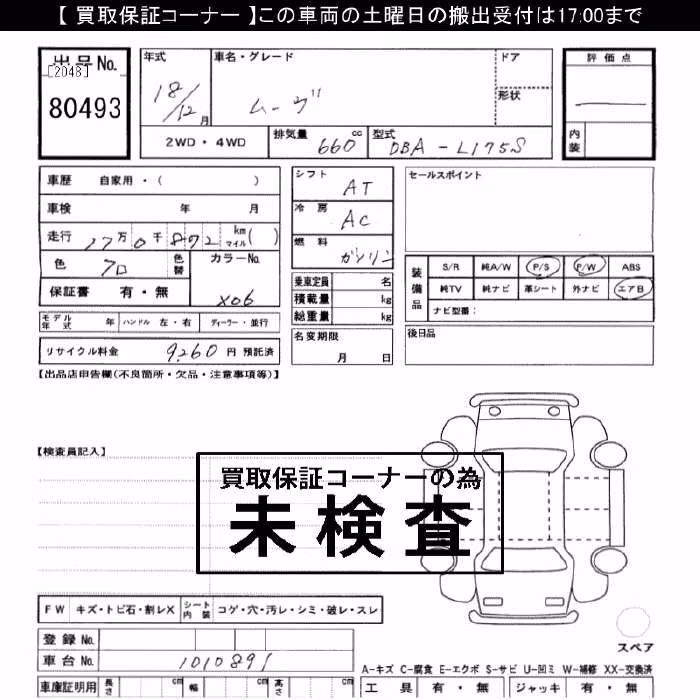 【 買取保証コーナー 】この車両の土曜日の搬出受付は17:00まで
出品No.
[2048]
80493
年式
18/12月
車名・グレード
ムーヴ
ドア
形状
評価点
内装
2WD・4WD
排気量
660cc
型式
DBA-L175S
車歴 自家用・( )
車検 年 月
走行 17万0千872 km マイル( )
色 クロ
色替
カラーNo.
X06
保証書 有・無
モデル年式 年 ハンドル 左・右 ディーラー・並行
リサイクル料金 9,260円 預託済
シフト
AT
冷房
AC
燃料
ガソリン
乗車定員 名
積載量 kg
総重量 kg
名変期限
月 日
セールスポイント
装備品
S/R 純A/W P/S P/W ABS
純TV 純ナビ 革シート 外ナビ エアB
ナビ型番:
後日品
【出品店申告欄(不良箇所・欠品・注意事項等)】
【検査員記入】
買取保証コーナーの為
未検査
FW キズ・トビ石・割レX シート内装 コゲ・穴・汚レ・シミ・破レ・スレ
登録No.
車台No. 1010891
車庫証明用 長さ cm 幅 cm 高さ cm
スペア
A-キズ C-腐食 E-エクボ S-サビ U-凹ミ W-補修 XX-交換済
工具 有・無 ジャッキ 有・無